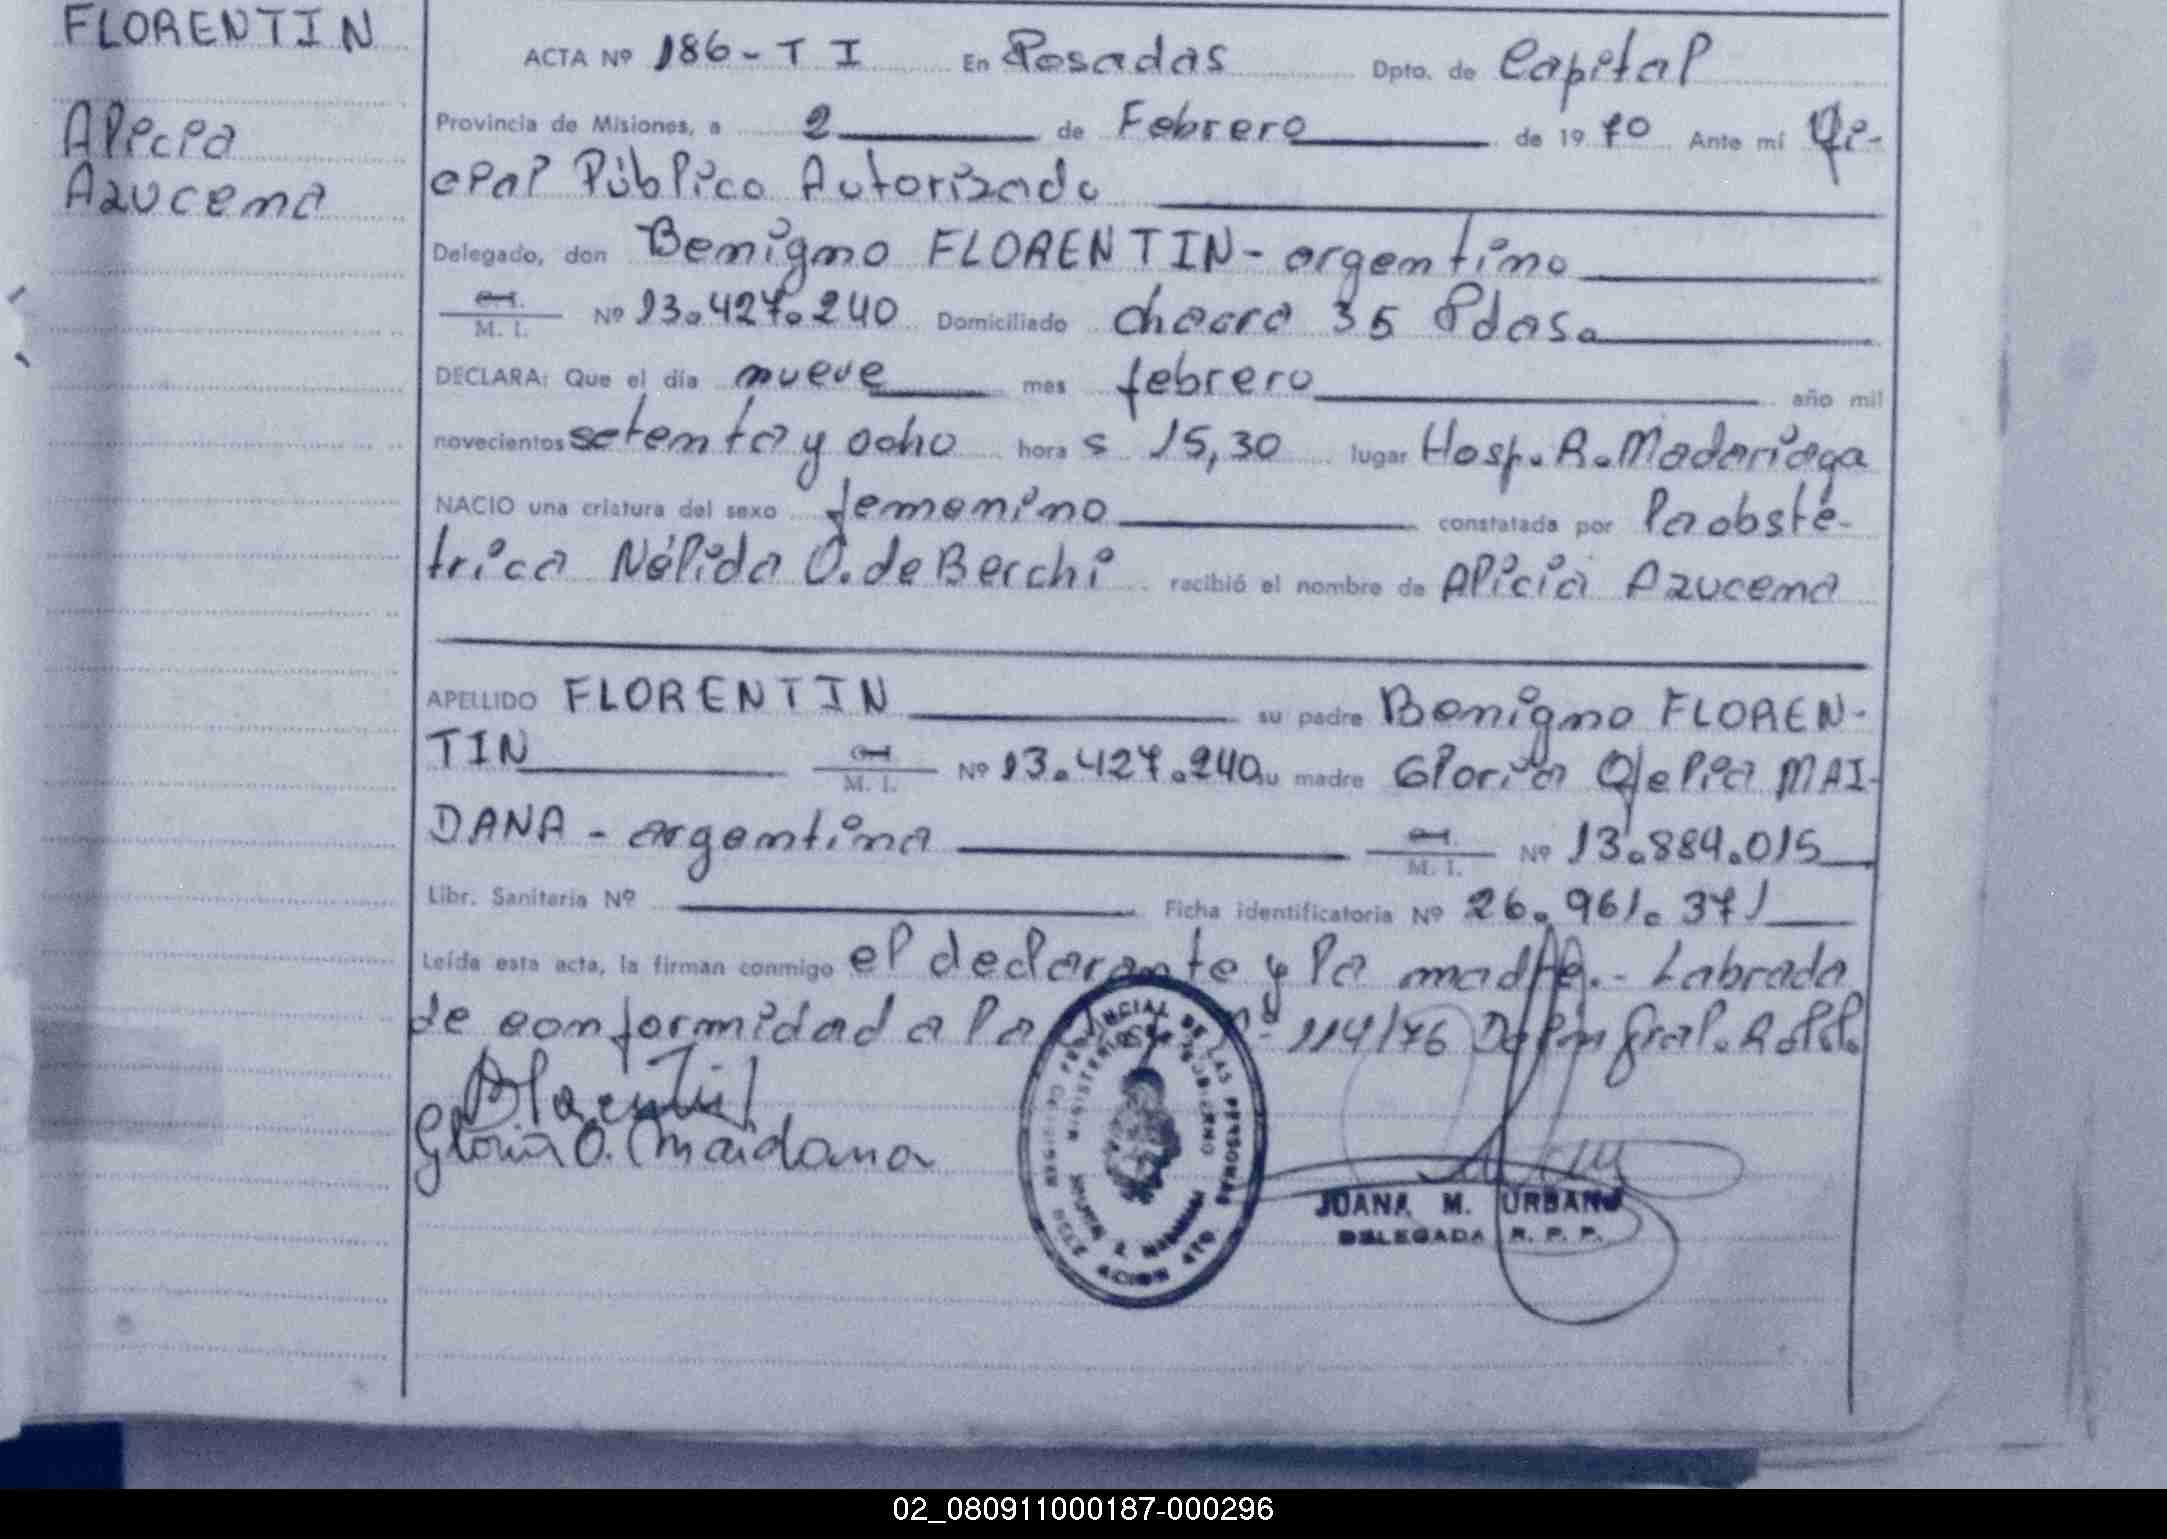 FLORENTIN
Alicia
Azucena
ACTA Nº 186-T I En Posadas Dpto. de Capital
Provincia de Misiones, a 2 de Febrero de 19 70 Ante mí Ofi-
cial Público Autorizado
Delegado, don Benigno FLORENTIN - argentino
M. I. Nº 13.427.240 Domiciliado chacra 35 Pdas.
DECLARA: Que el día nueve mes febrero año mil
novecientos setenta y ocho hora s 15,30 lugar Hosp. R. Madariaga
NACIO una criatura del sexo femenino constatada por la obste-
trica Nélida O. de Berchi recibió el nombre de Alicia Azucena
APELLIDO FLORENTIN su padre Benigno FLOREN-
TIN M. I. Nº 13.427.240 su madre Gloria Ofelia MAI-
DANA - argentina M. I. Nº 13.884.015
Libr. Sanitaria Nº Ficha identificatoria Nº 26.961.371
Leída esta acta, la firman conmigo el declarante y la madre.- Labrada
de conformidad a la Nº 114/76 Gral.
Gloria O. Maidana
PROVINCIAL DE LAS PERSONAS
MINISTERIO DE GOBIERNO
JUANA M. URBANO
DELEGADA R. P. P.
02_080911000187-000296